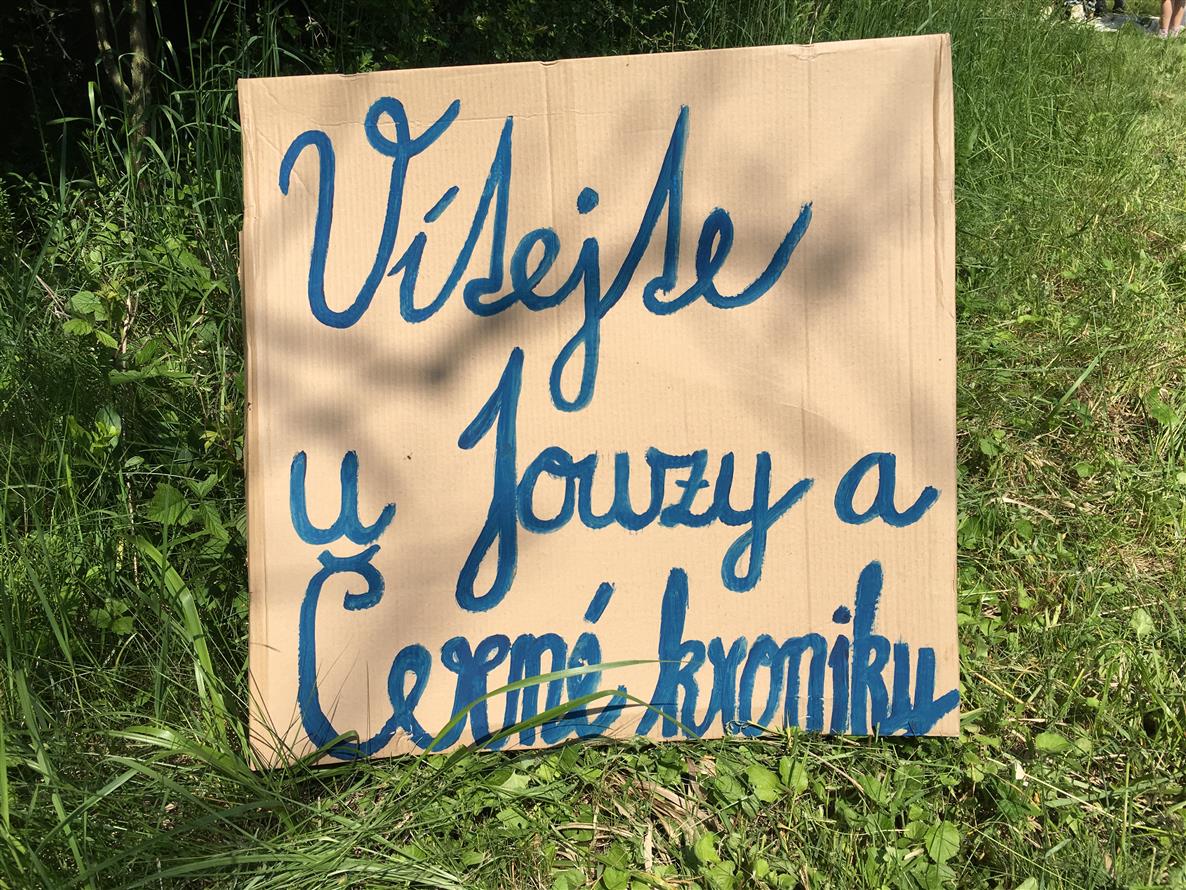 Vítejte
u Jouzy a
Černé kroniku